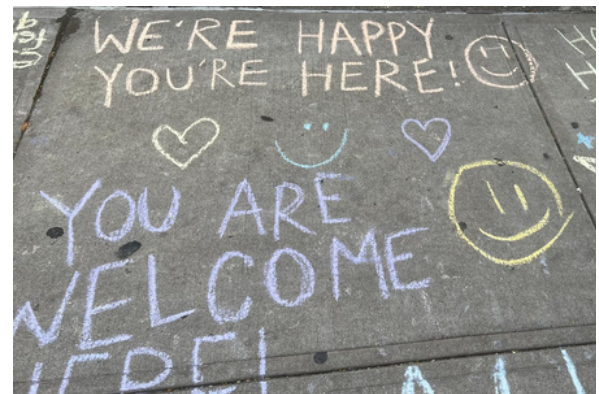 WE'RE HAPPY
YOU'RE HERE!
YOU ARE
WELCOME
HERE!